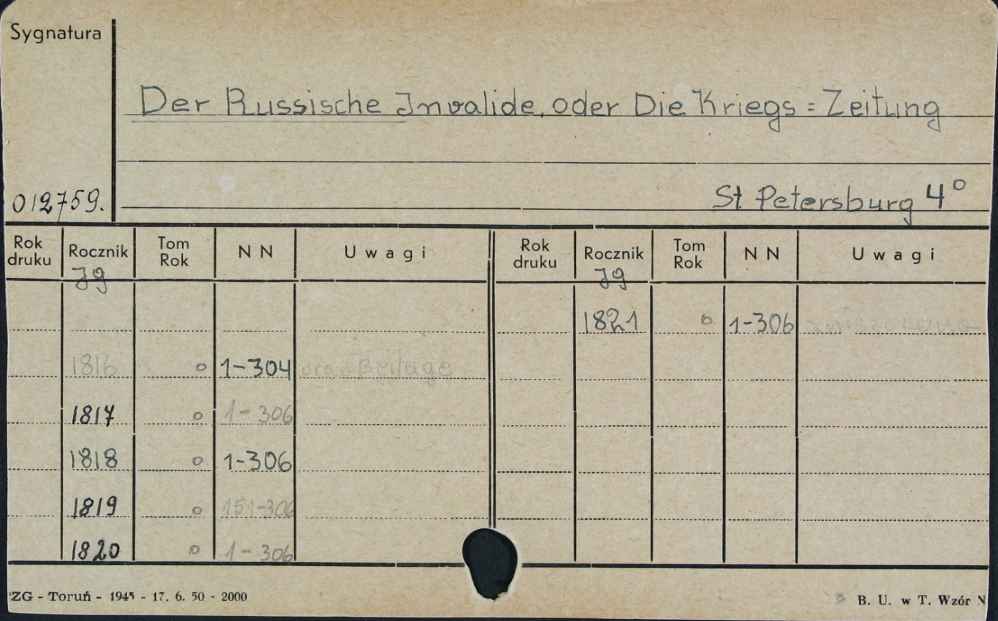 Sygnatura
Der Russische Invalide, oder Die Kriegs=Zeitung
012759. St Petersburg 4°
Rok druku Rocznik Tom Rok N N Uwagi Rok druku Rocznik Tom Rok N N Uwagi
Jg Jg
1821 o 1-306
1816 o 1-304 Beilage
1817 o 1-306
1818 o 1-306
1819 o 151-306
1820 o 1-306
ZG - Toruń - 1945 - 17. 6. 50 - 2000 B. U. w T. Wzór N